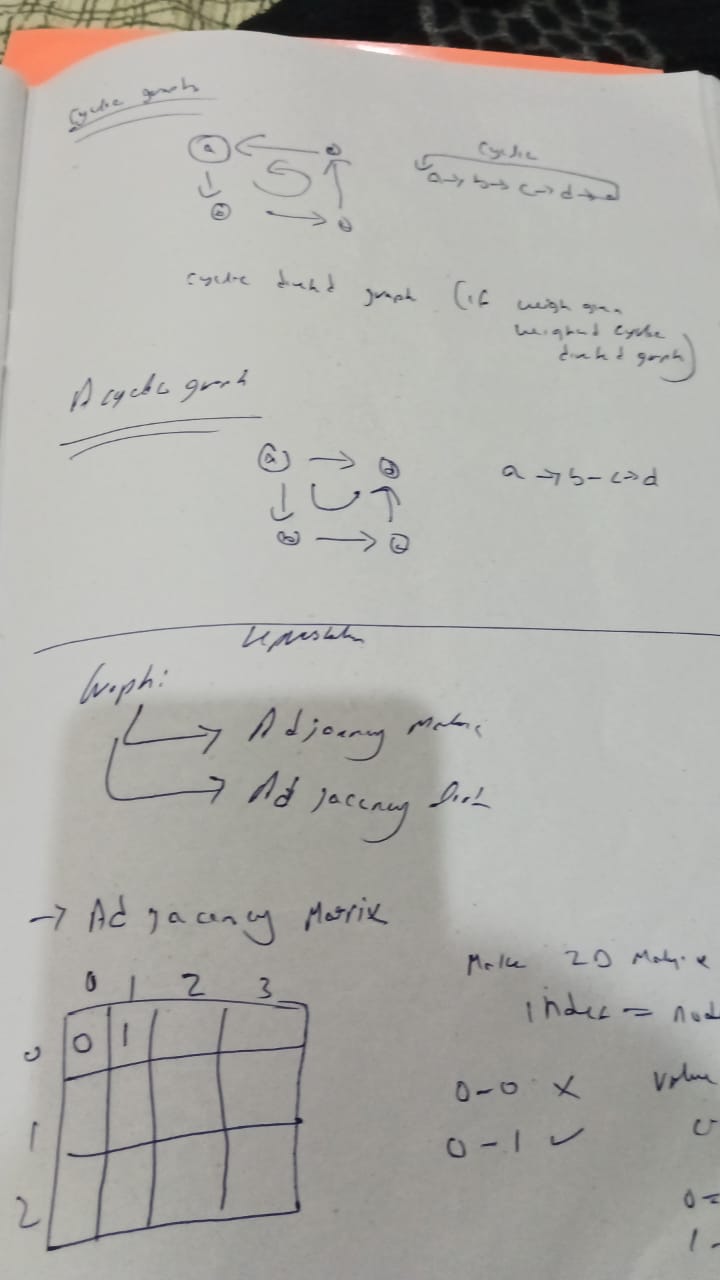 Cyclic graph
a
Cyclic
a → b → c → d → a
b
cyclic directed graph (if weigh given
weighted cyclic
directed graph)
A cyclic graph
a → d
a → b - c → d
b → c
Graph:
→ Adjacency Matrix
→ Adjacency List
→ Adjacency Matrix
Make 2D Matrix
0 1 2 3
index = nod
0 0 1
0-0 ×
0-1 ✓
1
2
0 =
1 -